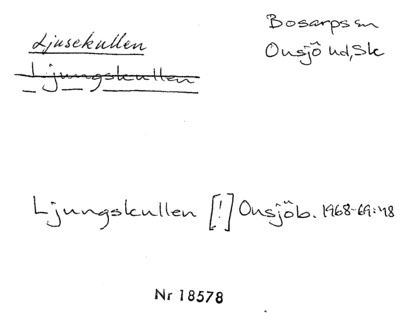 Ljusekullen
Ljungskullen
Bosarps sn
Onsjö hd, Sk
Ljungskullen [!] Onsjöb. 1968-69:48
Nr 18578